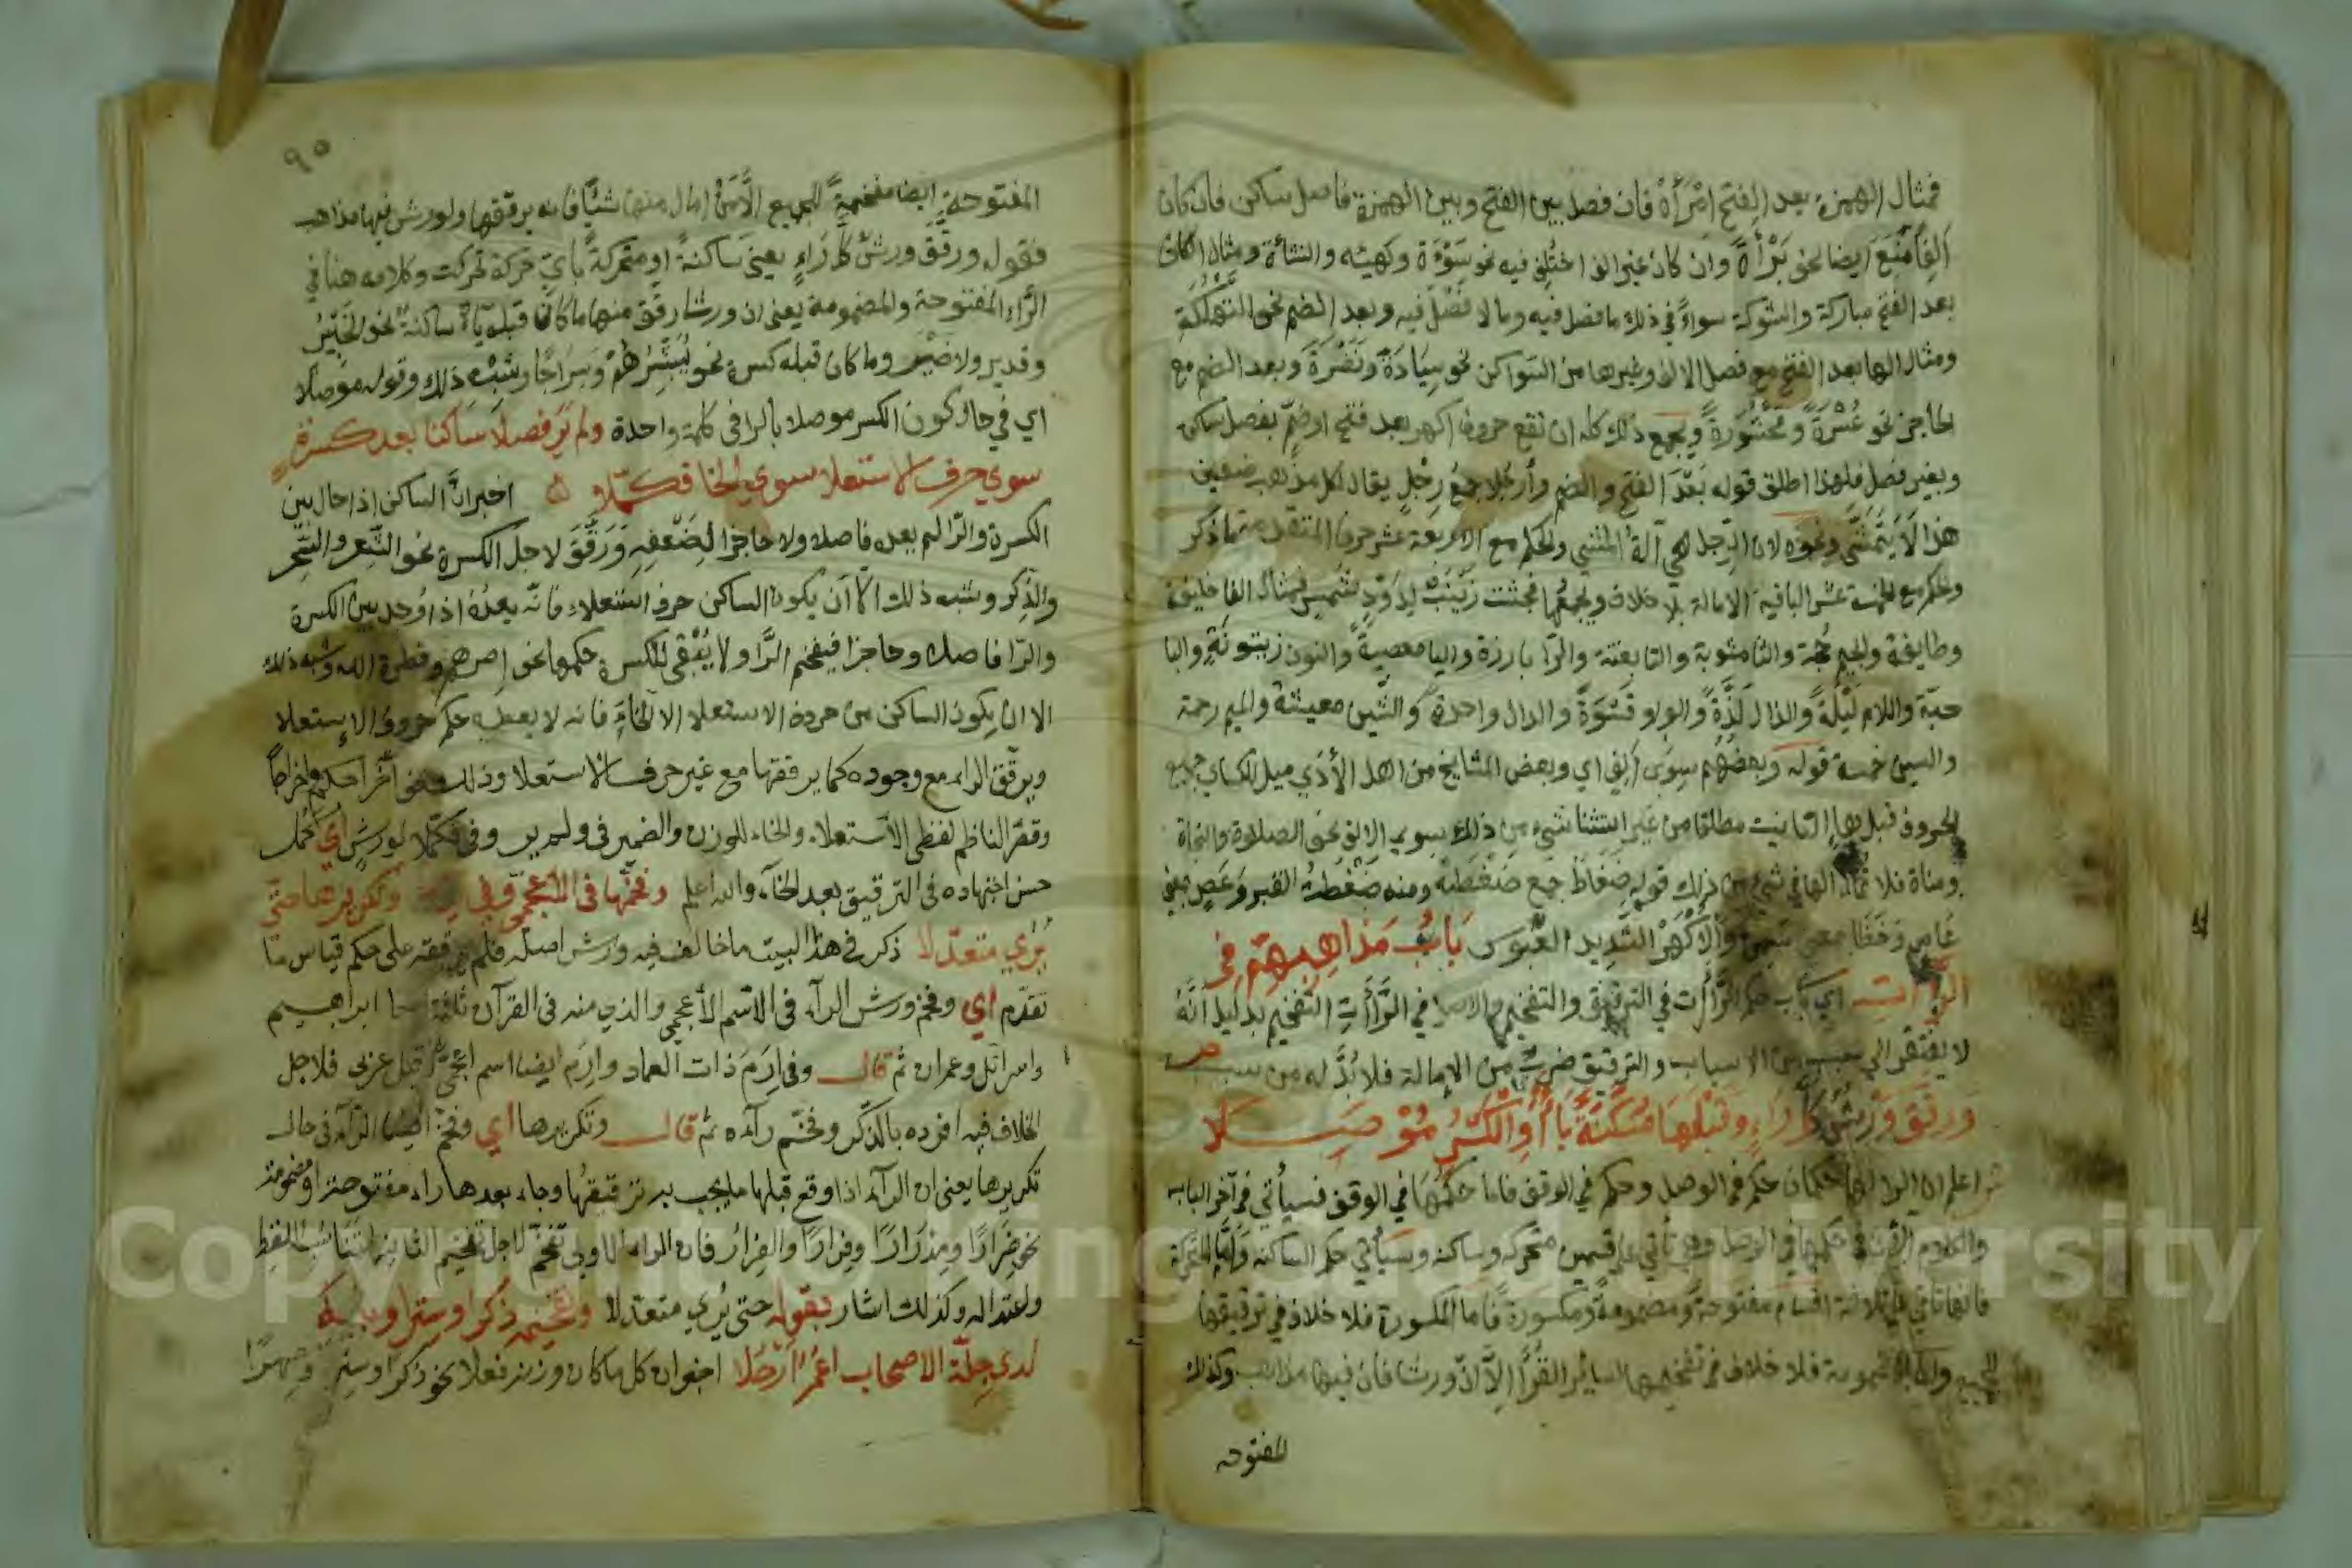 فمثال الهمزة بعد الفتح امرأة فان فصل بين الفتح وبين الهمزة فاصل ساكن فان كان
الفا مُنِعَ ايضا نحو بَرْأَة وان كان غير الف اختُلِف فيه نحو سَوْءَة وكهيئه والنشأة ومثال الكاف
بعد الفتح مباركة والشوكة سواءً في ذلك ما فصل فيه وما لا فصْلَ فيه وبعد الضم نحو التَّهْلُكَةِ
ومثال الها بعد الفتح مع فصل الالف وغيرها من السواكن نحو سيادَة ونَضْرَةَ وبعد الضم مع
الحاجز نحو عُسْرَةً ومحشُورَةً ويجمع ذلك كله ان تقع حروف اكهر بعد فتح او ضمّ بفصل ساكن
وبغير فصل فلهذا اطلق قوله بَعْدَ الفتح والضم وأرجُلا جمعُ رِجْلٍ يقال لكل مذهب ضعيف
هذا لا يَتَمَشَّى ونحوه لان الرِّجل هي آلة المشي والحكم مع الاربعة عشر حرفا المتقدمة ما ذكر
وحكم مع الخمسة عشر الباقية الامالة بلا خلاف ويجمعُها فجثت زَيْنَبٌ لِذَوْدِ شَمسٍ فمثال الفا خليفة
وطايفة والجيم حُجة والثا مثوبة والتا بغتة والزا بارزة واليا معصيةً والنون زيتونَةٍ والبا
حبّة واللام لَيْلَةً والذال لَذَّةً والواو قَسْوَةً والدال واحدة والشّين معيشة والميم رحمة
والسين خمسة قوله وبعضُهُم سِوَى ألِفٍ اي وبعض المشايخ من اهل الأدَي ميل للكساي جميع
الحروف قبل هاء التانيث مطلقا من غير استثنا شيء من ذلك سوى الالف نحو الصلاة والنجاة
ومناة فلا تمال الها في شيء من ذلك قوله ضِغَاطَ جمع ضَغْطَة ومنه ضَغْطَةُ القبر وعَصٍ بمعنى
عَاصٍ وخَظَا بمعنى سَمِنَ والأكْهَرُ الشديد العُبُوس بَابُ مَذاهِبِهِم في
الرَّاآتِ اي باب حكم الرَّاآت في الترقيق والتفخيم والاصل في الرَّاآتِ التفخيم بدليل انَّهُ
لا يفتقر الى سبب من الاسباب والترقيق ضربٌ من الإمالة فلا بُدَّ له من سبب ص
وَرَقَّقَ وَرْشٌ كُلَّ رَاءٍ وَقَبْلَهَا مُسَكَّنَةً يَاءٌ أَوِ الْكَسْرُ مُوْصَلا
ش اعلم ان الرا لها حكمان حكم في الوصل وحكم في الوقف فاما حكمُهَا في الوقف فسيأتي في آخر الباب
والكلام الآن في حكمها في الوصل وهي تأتي على قسمين متحركه وساكنه وسيأتي حكم الساكنه وامّا المتحركة
فانها تأتي على ثلاثة اقسام مفتوحة ومضمومةً ومكسورة فاما المكسورة فلا خلاف في ترقيقها
للجميع واما المضمومة فلا خلاف في تفخيمها لسائر القُرَّاء إلاَّ انّ ورشا فان فيها مذاهب وكذلك
المفتوحه
٩٥
المفتوحة ايضا مفخمةً للجميع إلاَّ مَنْ امال منها شيئًا فانه يرققها ولورش فيها مذاهب
فقوله ورقّق ورشٌ كل رَاءٍ يعني ساكنةً او متحركةً بايّ حركة تحركت وكلامه هنا في
الرَّاء المفتوحة والمضمومة يعني ان ورشا رقق منها ما كان قبله ياءٌ ساكنةٌ نحو الخَيْرُ
وقدير ولا ضَيْر وما كان قبله كسرة نحو يُبَشِّرُهُمْ وسِرَاجًا وشبْه ذلك وقوله موصلا
اي في حال كون الكسر موصلا بالرا في كلمة واحدة ولم يَرَ فصلاً سَاكنا بعد كسرةٍ
سوى حرف الاستعلا سوى الخا فكمّلا اخبر انَّ الساكن اذا حال بين
الكسرة والرّا لم يعده فاصلا ولا حاجزا لِضَعْفِهِ وَرَقَّقَ لاجل الكسرة نحو الشِّعر والسِّحر
والذِكر وشبه ذلك الاّ اَن يكون الساكن حرف استعلاء فانّه يعدُهُ اذا وُجد بين الكسرة
والرّا فاصلا وحاجزا فيفخم الرَّا ولا يُبْقى للكسرة حكمها نحو اِصرهم وفطرة الله وشبه ذلك
الا ان يكون الساكن من حروف الاستعلا الا الخاءَ فانه لا يعطيه حكم حروف الاستعلا
ويرقّق الراء مع وجوده كما يرققها مع غير حرف الاستعلا وذلك نحو إخْراجكم وإخراجًا
وقصّر الناظم لفظى الاستعلاء والخاء للوزن والضمير في ولم ير وفي فكمّلا لورش اي كمل
حسن اجتهاده في الترقيق بعد الخآء والله اعلم وفخّمها في الأعجميّ وفي إرم وتكريرها حتّى
يُرى متعدّلا ذكر في هذا البيت ما خالف فيه ورش اصله فلم يرققه على حكم قياس ما
تقدّم اي وفخم ورش الرآء في الاسم الأعجمي والذي منه في القرآن ثلاثة اسما ابراهيم
واسرائل وعمران ثم قال وفي اِرَمَ ذات العماد واِرَم ايضا اسم اعجميٌّ وقيل عزبى فلاجل
الخلاف فيه افرده بالذّكر وفخّم رآءه ثم قال وتكريرها اي وفخم ايضا الرّآء في حال
تكريرها يعني ان الرآء اذا وقع قبلها ما يجب به ترقيقُها وجاء بعدها راء مفتوحة او مضمومة
نحو ضِرَارًا ومِدْرَارًا وفِرَارًا والفِرَارُ فان الراء الاولى تفخّم لاجل تفخيم الثانية لتناسُب اللفظ
واعتداله وكذلك اشار بقوله حتى يُرى متعدّلا وتفخيمُه ذكرًا وسِترًا وبابَه
لدى جِلّة الاصحاب اعْمَرُ ارْحُلا اخبر ان كل ما كان وزنه فعلا نحو ذكرا وسِترًا وصِهْرًا